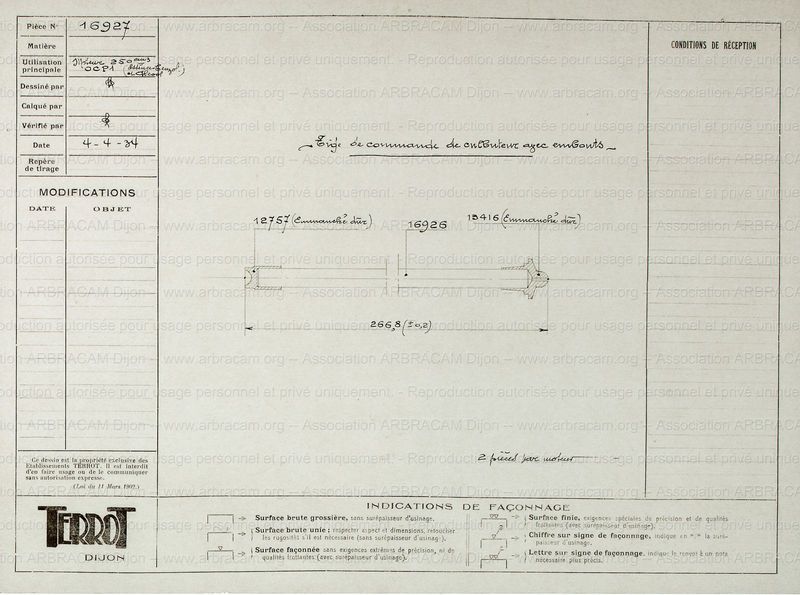 Pièce N° 16927
Matière
Utilisation principale Moteur 250 cms
OCP1
Dessiné par
Calqué par
Vérifié par
Date 4-4-34
Repère de tirage
MODIFICATIONS
DATE OBJET
CONDITIONS DE RÉCEPTION
Tige de commande de culbuteur avec embouts
12757 (Emmanché dur)
16926
15416 (Emmanché dur)
266,8 (±0,2)
2 pièces par moteur
Ce dessin est la propriété exclusive des
Etablissements TERROT. Il est interdit
d'en faire usage ou de le communiquer
sans autorisation expresse.
(Loi du 11 Mars 1902.)
TERROT
DIJON
INDICATIONS DE FAÇONNAGE
Surface brute grossière, sans surépaisseur d'usinage.
Surface brute unie : respecter aspect et dimensions, retoucher
les rugosités s'il est nécessaire (sans surépaisseur d'usinage).
Surface façonnée sans exigences extrêmes de précision, ni de
qualités frottantes (avec surépaisseur d'usinage).
Surface finie, exigences spéciales de précision et de qualités
frottantes (avec surépaisseur d'usinage).
Chiffre sur signe de façonnage, indique en m/m la suré-
paisseur d'usinage.
Lettre sur signe de façonnage, indique le renvoi à un nota
nécessaire plus précis.
www.arbracam.org – Association ARBRACAM Dijon
Reproduction autorisée pour usage personnel et privé uniquement.